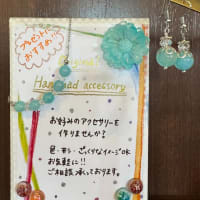 プレゼントに
おすすめ!!
Original
Handmad accessory
お好みのアクセサリーを
作りませんか?
色・形・ざっくりなイメージOK
お気軽に!!
ご相談承っております。